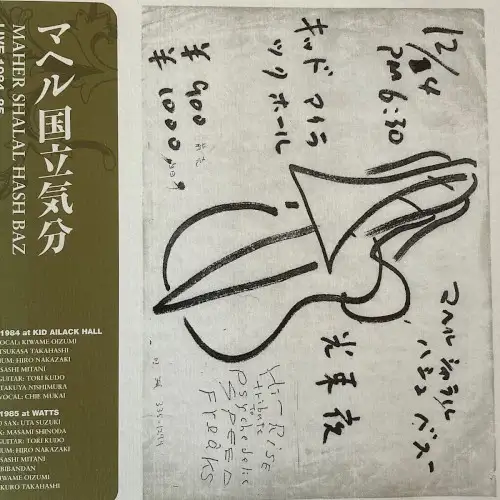 マヘル国立気分
MAHER SHALAL HASH BAZ
LIVE 1984-85
1984 at KID AILACK HALL
VOCAL: KIWAME OIZUMI
TSUKASA TAKAHASHI
HIRO NAKAZAKI
SASHI MITANI
GUITAR: TORI KUDO
TAKUYA NISHIMURA
VOCAL: CHIE MUKAI
1985 at WATTS
SAX: UTA SUZUKI
MASAMI SHINODA
GUITAR: TORI KUDO
HIRO NAKAZAKI
SASHI MITANI
BIBANDAN
IWAME OIZUMI
KURO TAKAHASHI
12/24
PM 6:30
キッド アイラ
ック ホール
¥ 900 前売
¥ 1000 当日
マヘル シャラル
ハシュ バズ
光束夜
High Rise
tribute
To
Psychedelic
SPEED
Freaks